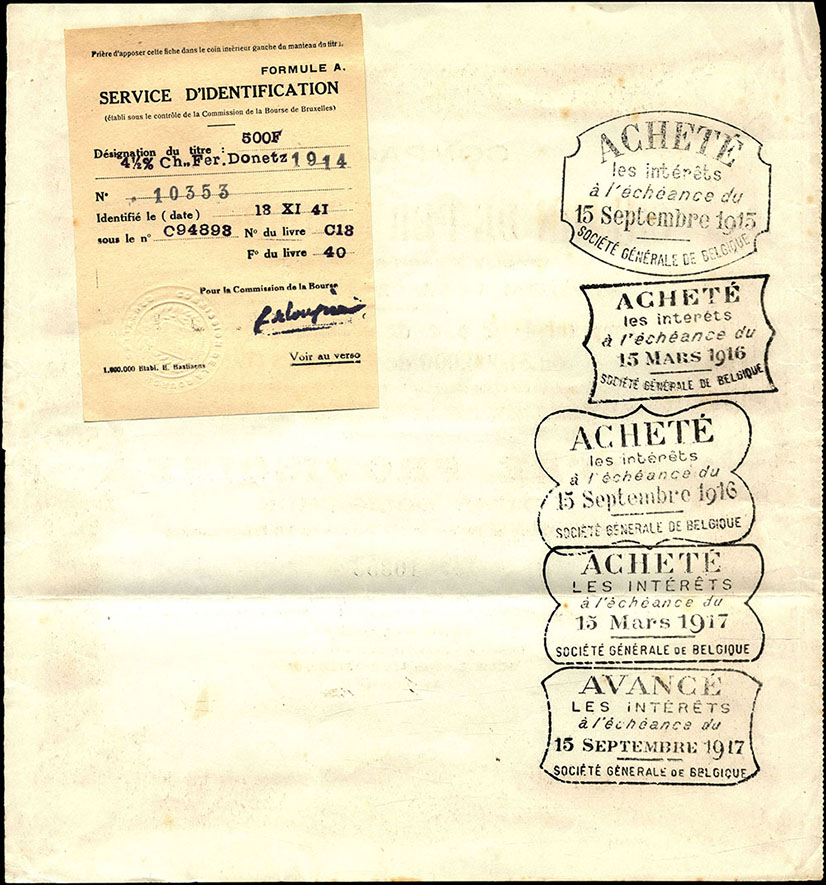 Prière d'apposer cette fiche dans le coin inférieur gauche du manteau du titre.
FORMULE A.
SERVICE D'IDENTIFICATION
(établi sous le contrôle de la Commission de la Bourse de Bruxelles)
500F
Désignation du titre :
4½% Ch. Fer. Donetz 1914
N° 10353
Identifié le (date) 18 XI 41
sous le n° C94893 N° du livre C13
F° du livre 40
Pour la Commission de la Bourse
Voir au verso
1.000.000 Etabl. H. Bastiaens
ACHETÉ
les intérêts
à l'échéance du
15 Septembre 1915
SOCIÉTÉ GÉNÉRALE DE BELGIQUE
ACHETÉ
les intérêts
à l'échéance du
15 MARS 1916
SOCIÉTÉ GÉNÉRALE DE BELGIQUE
ACHETÉ
les intérêts
à l'échéance du
15 Septembre 1916
SOCIÉTÉ GÉNÉRALE DE BELGIQUE
ACHETÉ
LES INTÉRÊTS
à l'échéance du
15 Mars 1917
SOCIÉTÉ GÉNÉRALE DE BELGIQUE
AVANCÉ
LES INTÉRÊTS
à l'échéance du
15 SEPTEMBRE 1917
SOCIÉTÉ GÉNÉRALE DE BELGIQUE